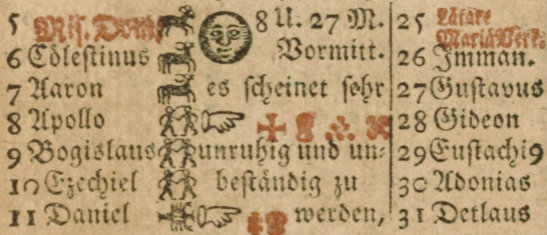 5 Mis. Dom. 8 U. 27 M. 25 Lätare
Mariä Verk.
6 Cölestinus Vormitt. 26 Imman.
7 Aaron es scheinet sehr 27 Gustavus
8 Apollo 28 Gideon
9 Bogislaus unruhig und un- 29 Eustachi9
10 Ezechiel beständig zu 30 Adonias
11 Daniel werden, 31 Detlaus